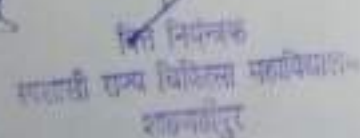 वित्त नियन्त्रक
स्वशासी राज्य चिकित्सा महाविद्यालय
शाहजहाँपुर